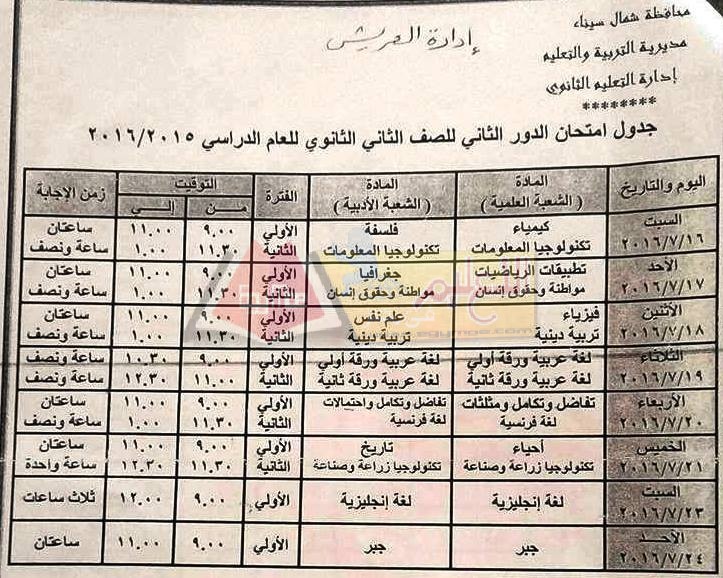 محافظة شمال سيناء
مديرية التربية والتعليم
إدارة التعليم الثانوي
********
إدارة العريش
جدول امتحان الدور الثاني للصف الثاني الثانوي للعام الدراسي ٢٠١٦/٢٠١٥
اليوم والتاريخ المادة (الشعبة العلمية) المادة (الشعبة الأدبية) الفترة التوقيت من إلي زمن الإجابة
السبت كيمياء فلسفة الأولي ٩.٠٠ ١١.٠٠ ساعتان
٢٠١٦/٧/١٦ تكنولوجيا المعلومات تكنولوجيا المعلومات الثانية ١١.٣٠ ١.٠٠ ساعة ونصف
الأحد تطبيقات الرياضيات جغرافيا الأولي ٩.٠٠ ١١.٠٠ ساعتان
٢٠١٦/٧/١٧ مواطنة وحقوق إنسان مواطنة وحقوق إنسان الثانية ١١.٣٠ ١.٠٠ ساعة ونصف
الأثنين فيزياء علم نفس الأولي ٩.٠٠ ١١.٠٠ ساعتان
٢٠١٦/٧/١٨ تربية دينية تربية دينية الثانية ١١.٣٠ ١.٠٠ ساعة ونصف
الثلاثاء لغة عربية ورقة أولي لغة عربية ورقة أولي الأولي ٩.٠٠ ١٠.٣٠ ساعة ونصف
٢٠١٦/٧/١٩ لغة عربية ورقة ثانية لغة عربية ورقة ثانية الثانية ١١.٠٠ ١٢.٣٠ ساعة ونصف
الأربعاء تفاضل وتكامل ومثلثات تفاضل وتكامل واحتمالات الأولي ٩.٠٠ ١١.٠٠ ساعتان
٢٠١٦/٧/٢٠ لغة فرنسية لغة فرنسية الثانية ١١.٣٠ ١.٠٠ ساعة ونصف
الخميس أحياء تاريخ الأولي ٩.٠٠ ١١.٠٠ ساعتان
٢٠١٦/٧/٢١ تكنولوجيا زراعة وصناعة تكنولوجيا زراعة وصناعة الثانية ١١.٣٠ ١٢.٣٠ ساعة واحدة
السبت لغة إنجليزية لغة إنجليزية الأولي ٩.٠٠ ١٢.٠٠ ثلاث ساعات
٢٠١٦/٧/٢٣
الأحد جبر جبر الأولي ٩.٠٠ ١١.٠٠ ساعتان
٢٠١٦/٧/٢٤